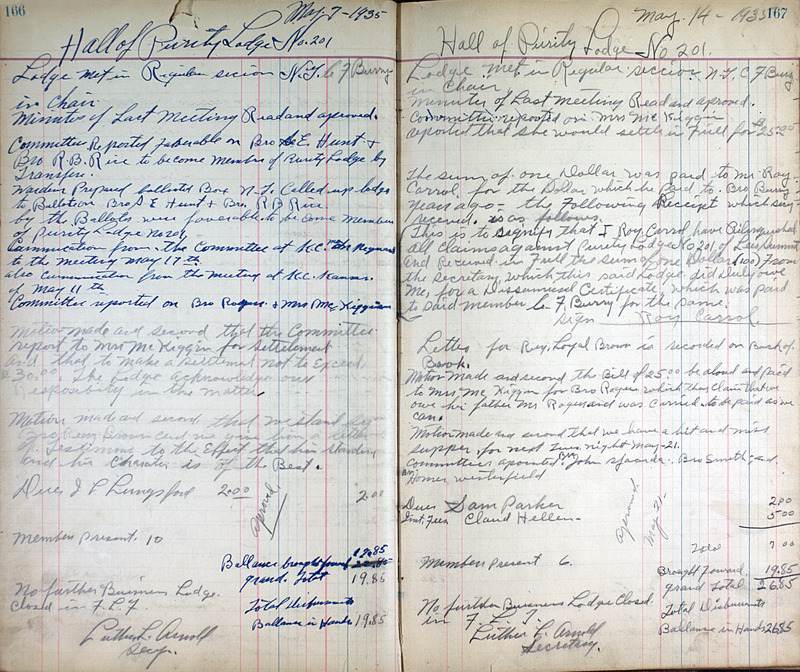 166
May-7-1935
Hall of Purity Lodge No. 201
Lodge met in Regular secion N.G. C F Burry
in Chair
Minutes of Last Meeting Read and aproved.
Committee Reported faverable on Bro S E. Hunt +
Bro R.B. Rice to become Members of Purity Lodge by
Transfer.
Warden Prepared Ballott Box N.G. Called up lodge
to Ballot on Bro S E Hunt + Bro. R B Rice
by the Ballots were faverable to become members
of Purity Lodge No 201
from the Committee at K.C.
to the meeting May 17 th
also from the meeting at K.C.
of May 11 th
Committee reported on Bro Rogers + Mrs McKiggin
Motion made and second that the Committee
report to Mrs McKiggin for Settlement
and that to make a settlement not to Exceed
$30.00. The Lodge acknowledge our
in the matter.
Motion made and second that we stand by
Bro Rev Brown and we give him a letter
of to the Effect that his standing
and his Character is of the Best.
Dues J P Lungsford 2.00 2.00
Aproved
Members Present. 10
Ballance brought forward 17.85
grand. Total 19.85
No further Business Lodge.
Closed in F. L. T.
Total Disburments
Ballance in Hands 19.85
Luther L. Arnold
Secy.
167
May. 14 - 1935
Hall of Purity Lodge No 201.
Lodge met in Regular secion. N.G. C. F Burry
in Chair
Minutes of Last Meeting Read and aproved.
Committee reported on Mrs McKiggin
reported that she would settle in Full for $25.00
The sum of one Dollar was paid to Mr. Roy.
Carrol, for the Dollar which he Paid to Bro Burry
years ago - the Following Receipt which
received. is as follows.
This is to Signify that I Roy Carrol have Relinquished
all claims against Purity Lodge No 201 of Lees Summit
and Recived in Full the sum of one Dollar (100) From
the Secretary, which this said Lodge did Duly owe
Me, for a Certificate, which was paid
to said member C F Burry for the same.
sign Roy Carrol.
Letter for Rev, Loyal Brown is recorded on Back of
Book.
Motion Made and second the Bill of 25.00 be aloud and paid
to Mrs. McKiggin for Bro Rogers which they Claim that we
owe her father Mr Rogers and was Carried. to be paid as we
can.
Motion made and second that we have a hit and miss
supper for next Tues. night May-21.
Committee apointed Bro John Bro Smith, and
Bro Homer Westerfield
Dues Sam Parker 2.00
Inst, Fees Claud Hellen 5.00
Aproved.
May 21-
Total 7.00
Members Present 6.
Brought forward. 19.85
grand Total 26.85
No further Business Lodge Closed
in F. L. T.
Total Disburments
Ballance in Hands 26.85
Luther L. Arnold
Secretary.